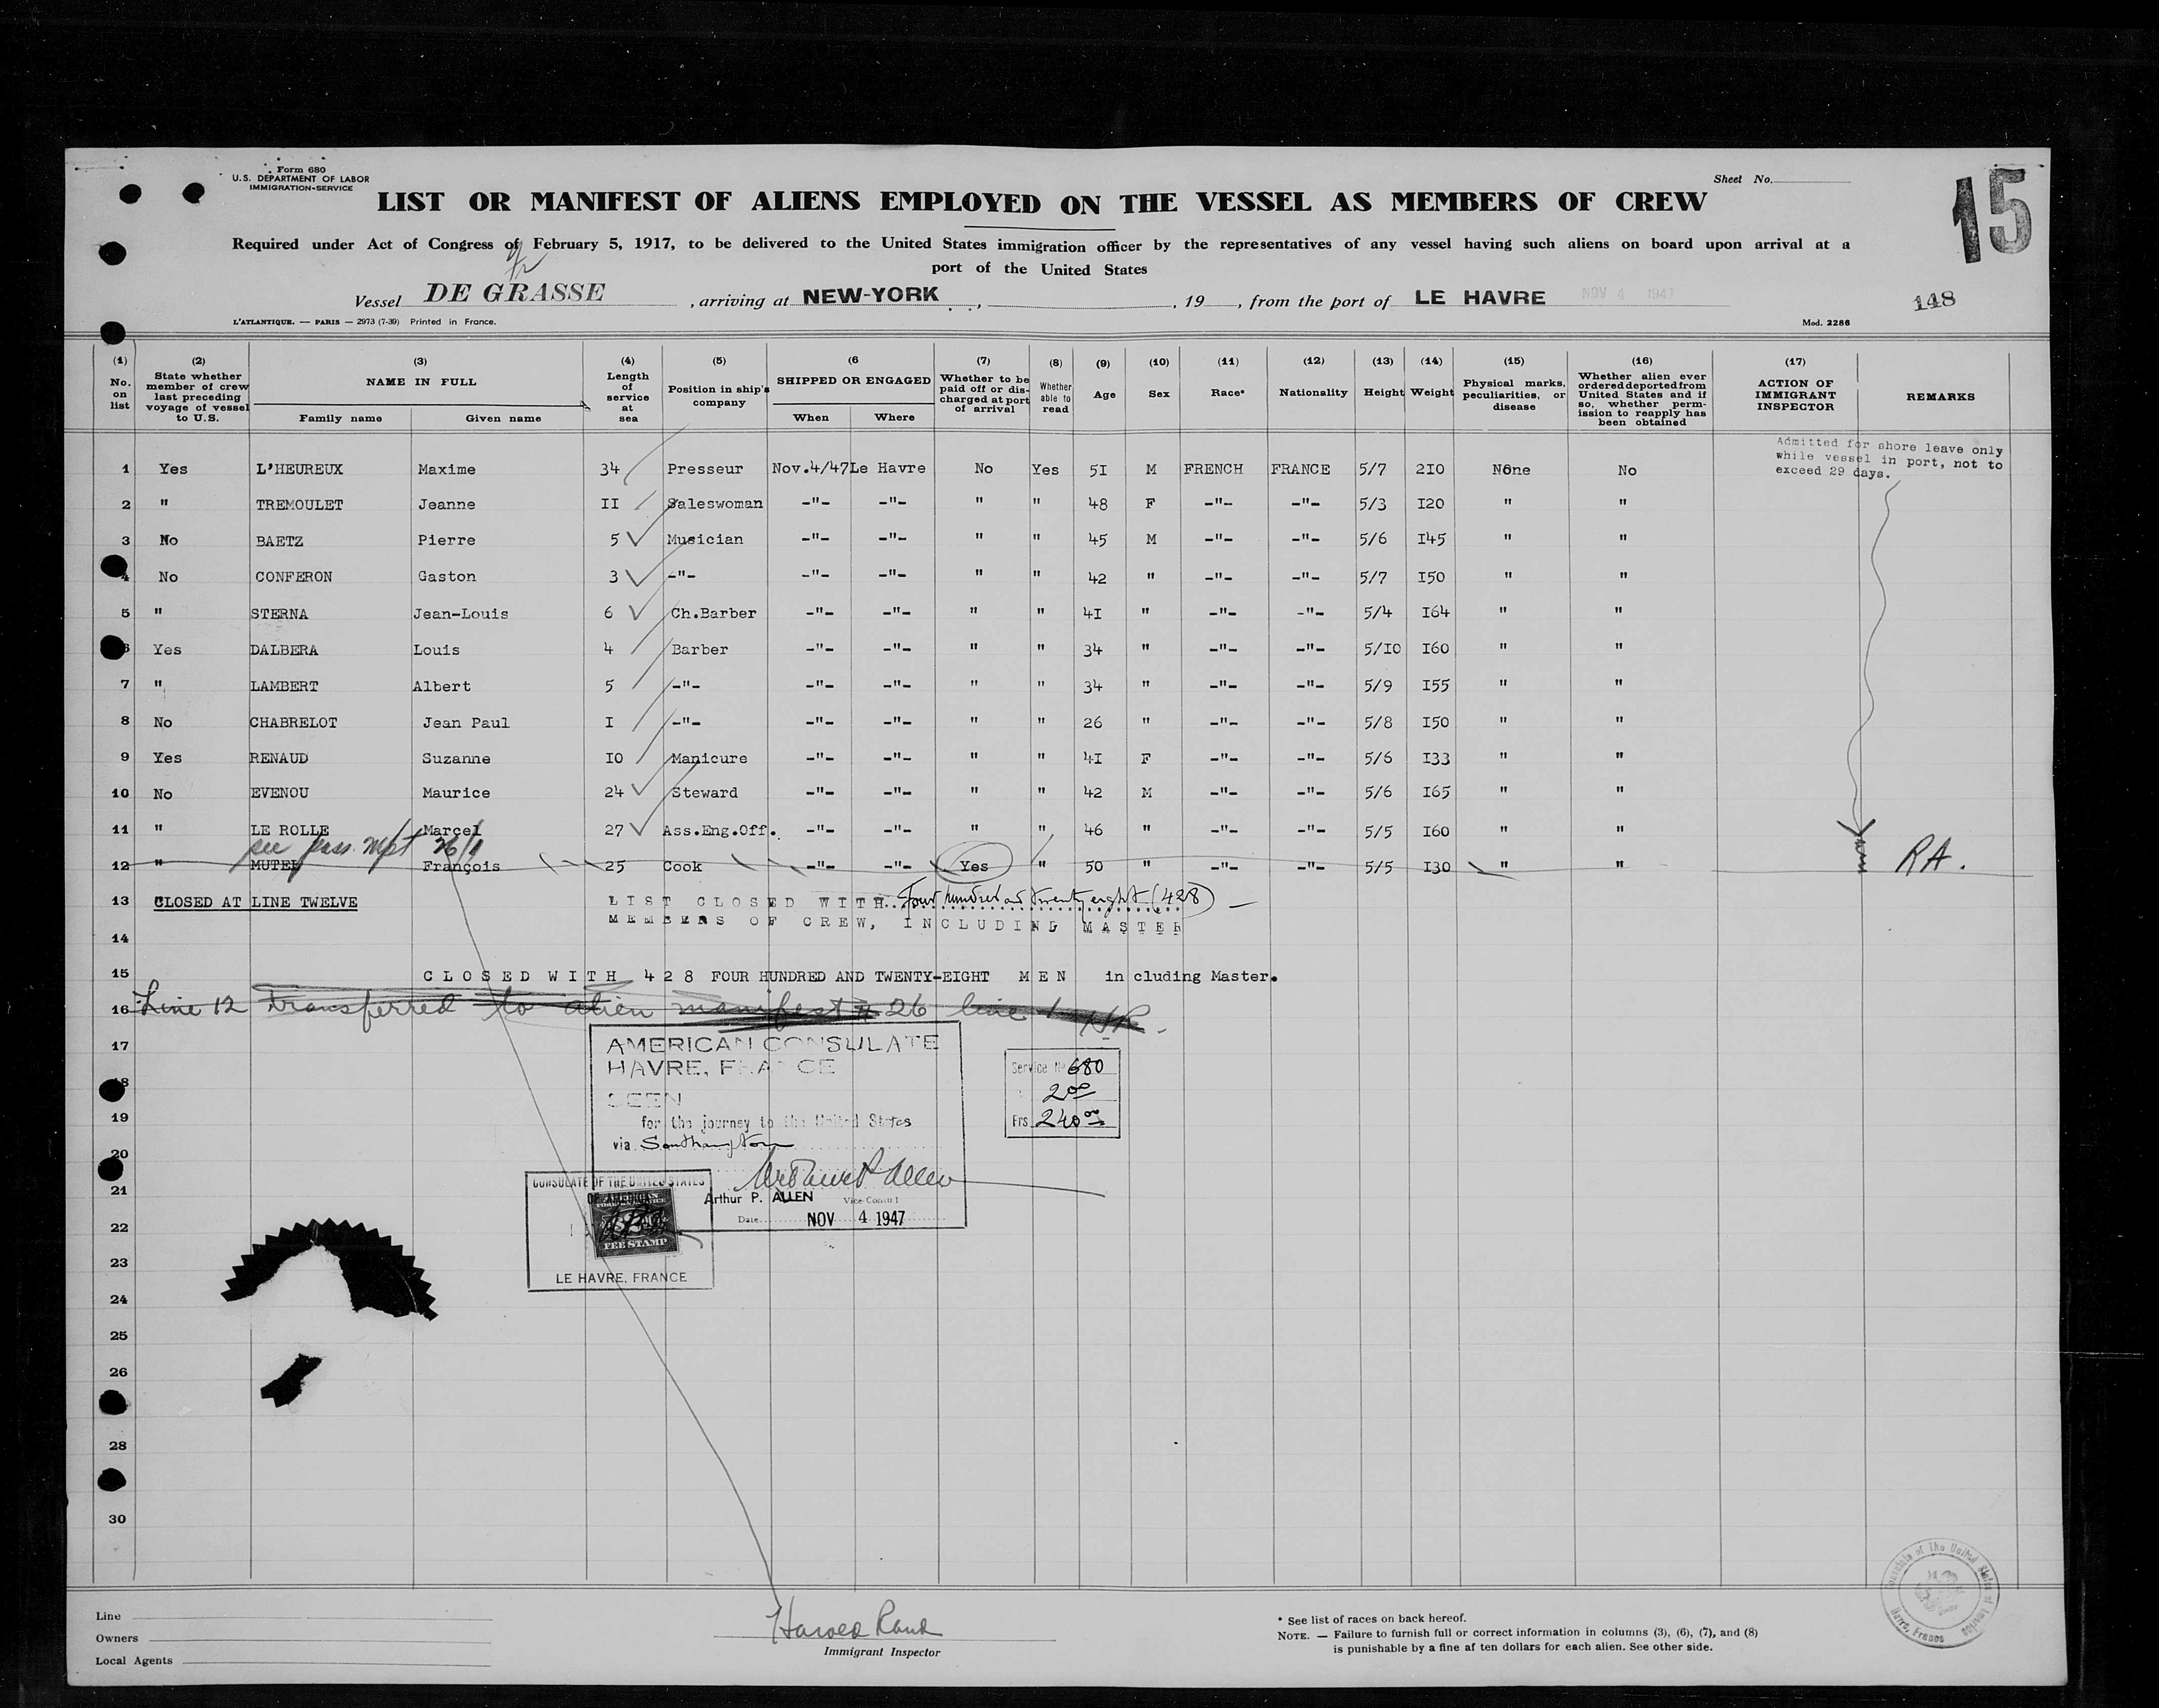 Form 680
U.S. DEPARTMENT OF LABOR
IMMIGRATION-SERVICE
Sheet No.
15
LIST OR MANIFEST OF ALIENS EMPLOYED ON THE VESSEL AS MEMBERS OF CREW
Required under Act of Congress of February 5, 1917, to be delivered to the United States immigration officer by the representatives of any vessel having such aliens on board upon arrival at a
port of the United States
Vessel DE GRASSE , arriving at NEW-YORK , , 19 , from the port of LE HAVRE NOV 4 1947
148
L'ATLANTIQUE. — PARIS — 2973 (7-39) Printed in France.
Mod. 2286
(1) (2) (3) (4) (5) (6 (7) (8) (9) (10) (11) (12) (13) (14) (15) (16) (17)
No. on list
State whether member of crew last preceding voyage of vessel to U.S.
NAME IN FULL
Family name Given name
Length of service at sea
Position in ship's company
SHIPPED OR ENGAGED
When Where
Whether to be paid off or discharged at port of arrival
Whether able to read
Age
Sex
Race*
Nationality
Height
Weight
Physical marks, peculiarities, or disease
Whether alien ever ordered deported from United States and if so, whether permission to reapply has been obtained
ACTION OF IMMIGRANT INSPECTOR
REMARKS
Admitted for shore leave only
while vessel in port, not to
exceed 29 days.
1 Yes L'HEUREUX Maxime 34 Presseur Nov.4/47 Le Havre No Yes 5I M FRENCH FRANCE 5/7 2I0 None No
2 " TREMOULET Jeanne II Saleswoman -"- -"- " " 48 F -"- -"- 5/3 I20 " "
3 No BAETZ Pierre 5 Musician -"- -"- " " 45 M -"- -"- 5/6 I45 " "
4 No CONFERON Gaston 3 -"- -"- -"- " " 42 " -"- -"- 5/7 I50 " "
5 " STERNA Jean-Louis 6 Ch.Barber -"- -"- " " 4I " -"- -"- 5/4 I64 " "
6 Yes DALBERA Louis 4 Barber -"- -"- " " 34 " -"- -"- 5/I0 I60 " "
7 " LAMBERT Albert 5 -"- -"- -"- " " 34 " -"- -"- 5/9 I55 " "
8 No CHABRELOT Jean Paul I -"- -"- -"- " " 26 " -"- -"- 5/8 I50 " "
9 Yes RENAUD Suzanne I0 Manicure -"- -"- " " 4I F -"- -"- 5/6 I33 " "
10 No EVENOU Maurice 24 Steward -"- -"- " " 42 M -"- -"- 5/6 I65 " "
11 " LE ROLLE Marcel 27 Ass.Eng.Off. -"- -"- " " 46 " -"- -"- 5/5 I60 " "
see pass. mft 26/1
12 " MUTEL François 25 Cook -"- -"- Yes " 50 " -"- -"- 5/5 I30 " " RA.
13 CLOSED AT LINE TWELVE LIST CLOSED WITH Four hundred and twenty eight (428)
MEMBERS OF CREW, INCLUDING MASTER
14
15 CLOSED WITH 428 FOUR HUNDRED AND TWENTY-EIGHT MEN in cluding Master.
16 Line 12 transferred to alien manifest # 26 line 1
17 AMERICAN CONSULATE
HAVRE, FRANCE
Service No 680
2 00
Frs. 240 00
18
SEEN
19 for the journey to the United States
via Southampton
20
21
CONSULATE OF THE UNITED STATES
OF AMERICA
Arthur P. ALLEN Vice Consul
22 Date NOV 4 1947
FEE STAMP
23 LE HAVRE, FRANCE
24
25
26
28
30
Line
Owners
Local Agents
Harold Rand
Immigrant Inspector
* See list of races on back hereof.
NOTE. — Failure to furnish full or correct information in columns (3), (6), (7), and (8)
is punishable by a fine af ten dollars for each alien. See other side.
Consulate of The United States of America
Havre, France